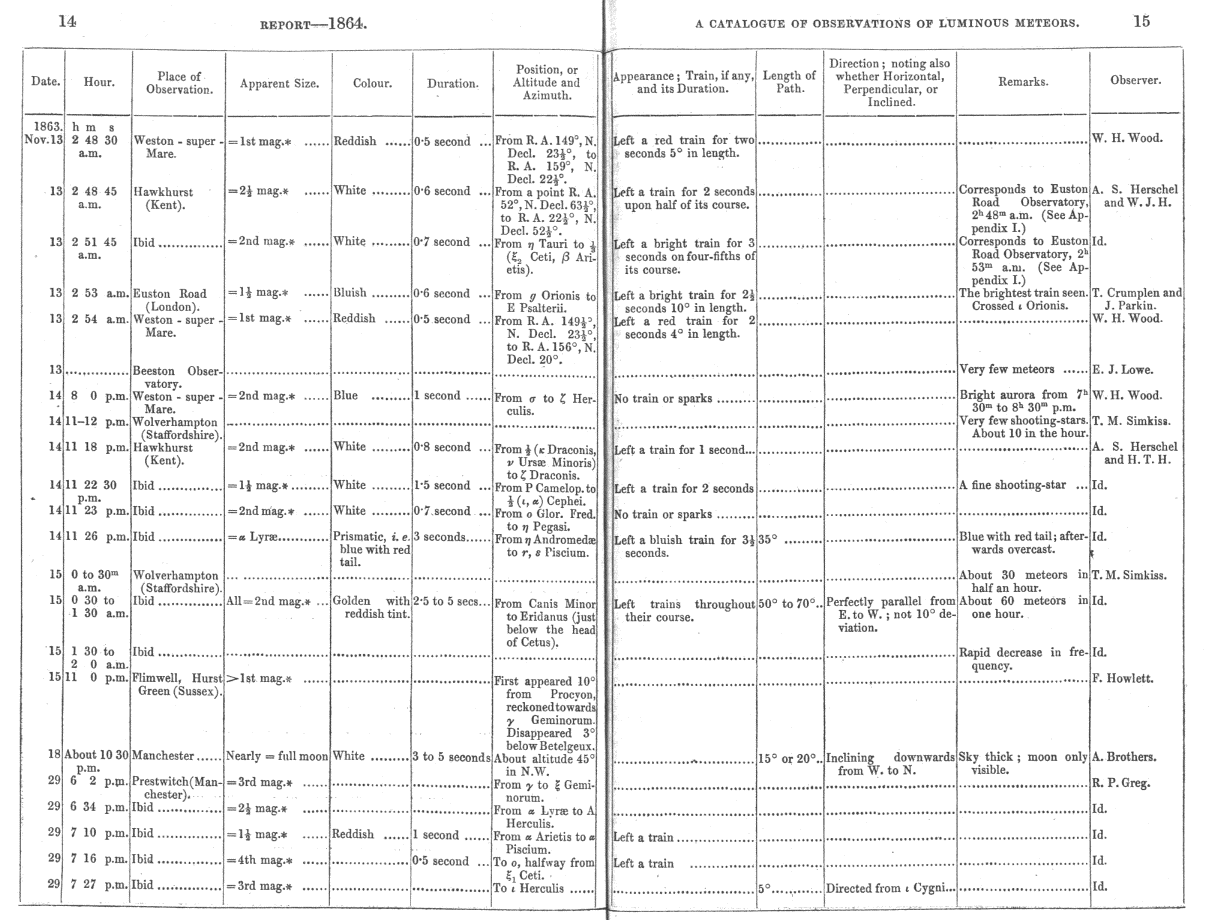 14 REPORT—1864.
A CATALOGUE OF OBSERVATIONS OF LUMINOUS METEORS. 15
Date. Hour. Place of Observation. Apparent Size. Colour. Duration. Position, or Altitude and Azimuth. Appearance; Train, if any, and its Duration. Length of Path. Direction; noting also whether Horizontal, Perpendicular, or Inclined. Remarks. Observer.
1863. h m s
Nov.13 2 48 30 Weston - super - =1st mag.* ...... Reddish ...... 0·5 second ... From R. A. 149°, N. Left a red train for two W. H. Wood.
a.m. Mare. Decl. 23½°, to seconds 5° in length.
R. A. 159°, N.
Decl. 22½°.
13 2 48 45 Hawkhurst =2½ mag.* ...... White ......... 0·6 second ... From a point R. A. Left a train for 2 seconds Corresponds to Euston A. S. Herschel
a.m. (Kent). 52°, N. Decl. 63½°, upon half of its course. Road Observatory, and W. J. H.
to R. A. 22½°, N. 2ʰ 48ᵐ a.m. (See Ap-
Decl. 52½°. pendix I.)
13 2 51 45 Ibid ............... =2nd mag.* ...... White ......... 0·7 second ... From η Tauri to ⅓ Left a bright train for 3 Corresponds to Euston Id.
a.m. (ξ₂ Ceti, β Ari- seconds on four-fifths of Road Observatory, 2ʰ
etis). its course. 53ᵐ a.m. (See Ap-
pendix I.)
13 2 53 a.m. Euston Road =1½ mag.* ...... Bluish ......... 0·6 second ... From g Orionis to Left a bright train for 2½ The brightest train seen. T. Crumplen and
(London). E Psalterii. seconds 10° in length. Crossed ι Orionis. J. Parkin.
13 2 54 a.m. Weston - super - =1st mag.* ...... Reddish ...... 0·5 second ... From R. A. 149½°, Left a red train for 2 W. H. Wood.
Mare. N. Decl. 23½°, seconds 4° in length.
to R. A. 156°, N.
Decl. 20°.
13 Beeston Obser- Very few meteors ...... E. J. Lowe.
vatory.
14 8 0 p.m. Weston - super - =2nd mag.* ...... Blue ......... 1 second ...... From σ to ζ Her- No train or sparks ......... Bright aurora from 7ʰ W. H. Wood.
Mare. culis. 30ᵐ to 8ʰ 30ᵐ p.m.
14 11–12 p.m. Wolverhampton Very few shooting-stars. T. M. Simkiss.
(Staffordshire). About 10 in the hour.
14 11 18 p.m. Hawkhurst =2nd mag.* ...... White ......... 0·8 second ... From ½ (κ Draconis, Left a train for 1 second... A. S. Herschel
(Kent). ν Ursæ Minoris) and H. T. H.
to ζ Draconis.
14 11 22 30 Ibid ............... =1½ mag.* ...... White ......... 1·5 second ... From P Camelop. to Left a train for 2 seconds A fine shooting-star ... Id.
p.m. ½ (ι, α) Cephei.
14 11 23 p.m. Ibid ............... =2nd mag.* ...... White ......... 0·7 second ... From o Glor. Fred. No train or sparks ......... Id.
to η Pegasi.
14 11 26 p.m. Ibid ............... =α Lyræ............ Prismatic, i. e. 3 seconds...... From η Andromedæ Left a bluish train for 3½ 35° ......... Blue with red tail; after- Id.
blue with red to r, s Piscium. seconds. wards overcast.
tail.
15 0 to 30ᵐ Wolverhampton About 30 meteors in T. M. Simkiss.
a.m. (Staffordshire). half an hour.
15 0 30 to Ibid ............... All=2nd mag.* ... Golden with 2·5 to 5 secs... From Canis Minor Left trains throughout 50° to 70°.. Perfectly parallel from About 60 meteors in Id.
1 30 a.m. reddish tint. to Eridanus (just their course. E. to W.; not 10° de- one hour.
below the head viation.
of Cetus).
15 1 30 to Ibid ............... Rapid decrease in fre- Id.
2 0 a.m. quency.
15 11 0 p.m. Flimwell, Hurst >1st mag.* ...... First appeared 10° F. Howlett.
Green (Sussex). from Procyon,
reckoned towards
γ Geminorum.
Disappeared 3°
below Betelgeux.
18 About 10 30 Manchester ...... Nearly = full moon White ......... 3 to 5 seconds About altitude 45° 15° or 20°.. Inclining downwards Sky thick; moon only A. Brothers.
p.m. in N.W. from W. to N. visible.
29 6 2 p.m. Prestwitch (Man- =3rd mag.* ...... From γ to ξ Gemi- R. P. Greg.
chester). norum.
29 6 34 p.m. Ibid ............... =2½ mag.* ...... From α Lyræ to A Id.
Herculis.
29 7 10 p.m. Ibid ............... =1½ mag.* ...... Reddish ...... 1 second ...... From α Arietis to α Left a train .................. Id.
Piscium.
29 7 16 p.m. Ibid ............... =4th mag.* ...... 0·5 second ... To o, halfway from Left a train .................. Id.
ξ₁ Ceti.
29 7 27 p.m. Ibid ............... =3rd mag.* ...... To ι Herculis ...... 5°............ Directed from ι Cygni... Id.